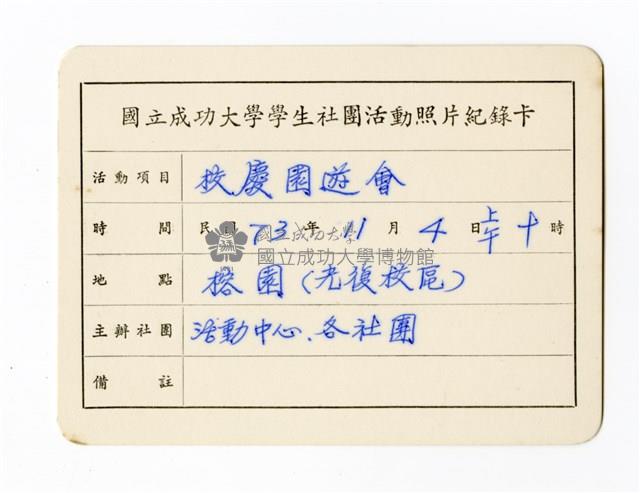 國立成功大學學生社團活動照片紀錄卡
活動項目 校慶園遊會
時間 民國73年11月4日上午十時
國立成功大學
國立成功大學博物館
地點 榕園(光復校區)
主辦社團 活動中心、各社團
備註